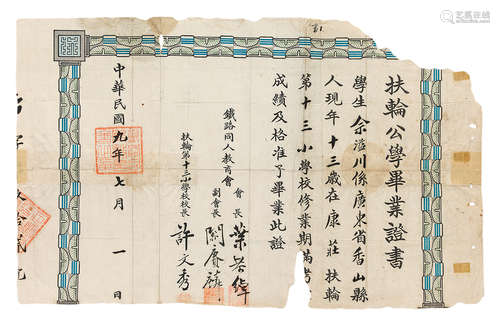 扶輪公學畢業證書
學生余滋川係廣東省香山縣
人現年十三歲在康莊扶輪
第十三小學校修業期滿考
成績及格准予畢業此證
鐵路同人教育會
會長葉恭綽
副會長關賡麟
扶輪第十三小學校校長許文秀
中華民國九年七月一日